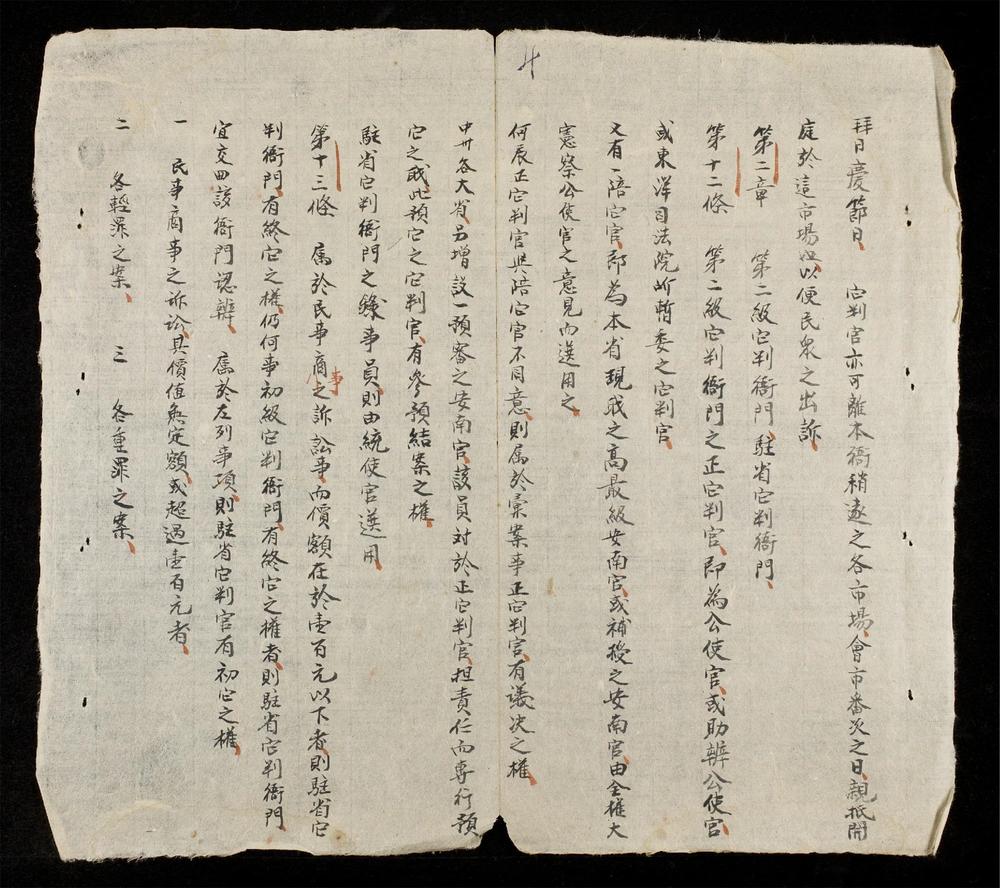 拜日慶節日、　它判官亦可離本衙稍遠之各市場、會市番次之日、親抵開
庭於這市場、以便民衆之出訴、
第二章　第二級它判衙門、駐省它判衙門、
第十二條　第二級它判衙門之正它判官、即為公使官、或助辦公使官、
或東洋司法院所暫委之它判官、
又有一陪它官、即為本省現職之高最級安南官、或補授之安南官、由全權大
憲察公使官之意見而選用之、
何辰正它判官與陪它官不同意、則属於案事正它判官、有議决之權、
中圻各大省另增設一預審之安南官、該員对於正它判官、担責任而專行預
它之职、此預它之它判官、有參預結案之權、
駐省它判衙門之錄事員、則由統使官選用、
第十三條　属於民事商事之訴訟事、而價額在於壹百元以下者、則駐省它
判衙門、有終它之權、仍何事初級它判衙門、有終它之權者、則駐省它判衙門
宜交回該衙門認辨、　属於左列事項、則駐省它判官有初它之權、
一　民事商事之訴訟、其價值無定額、或超過壹百元者、
二　各輕罪之案、　三　各重罪之案、